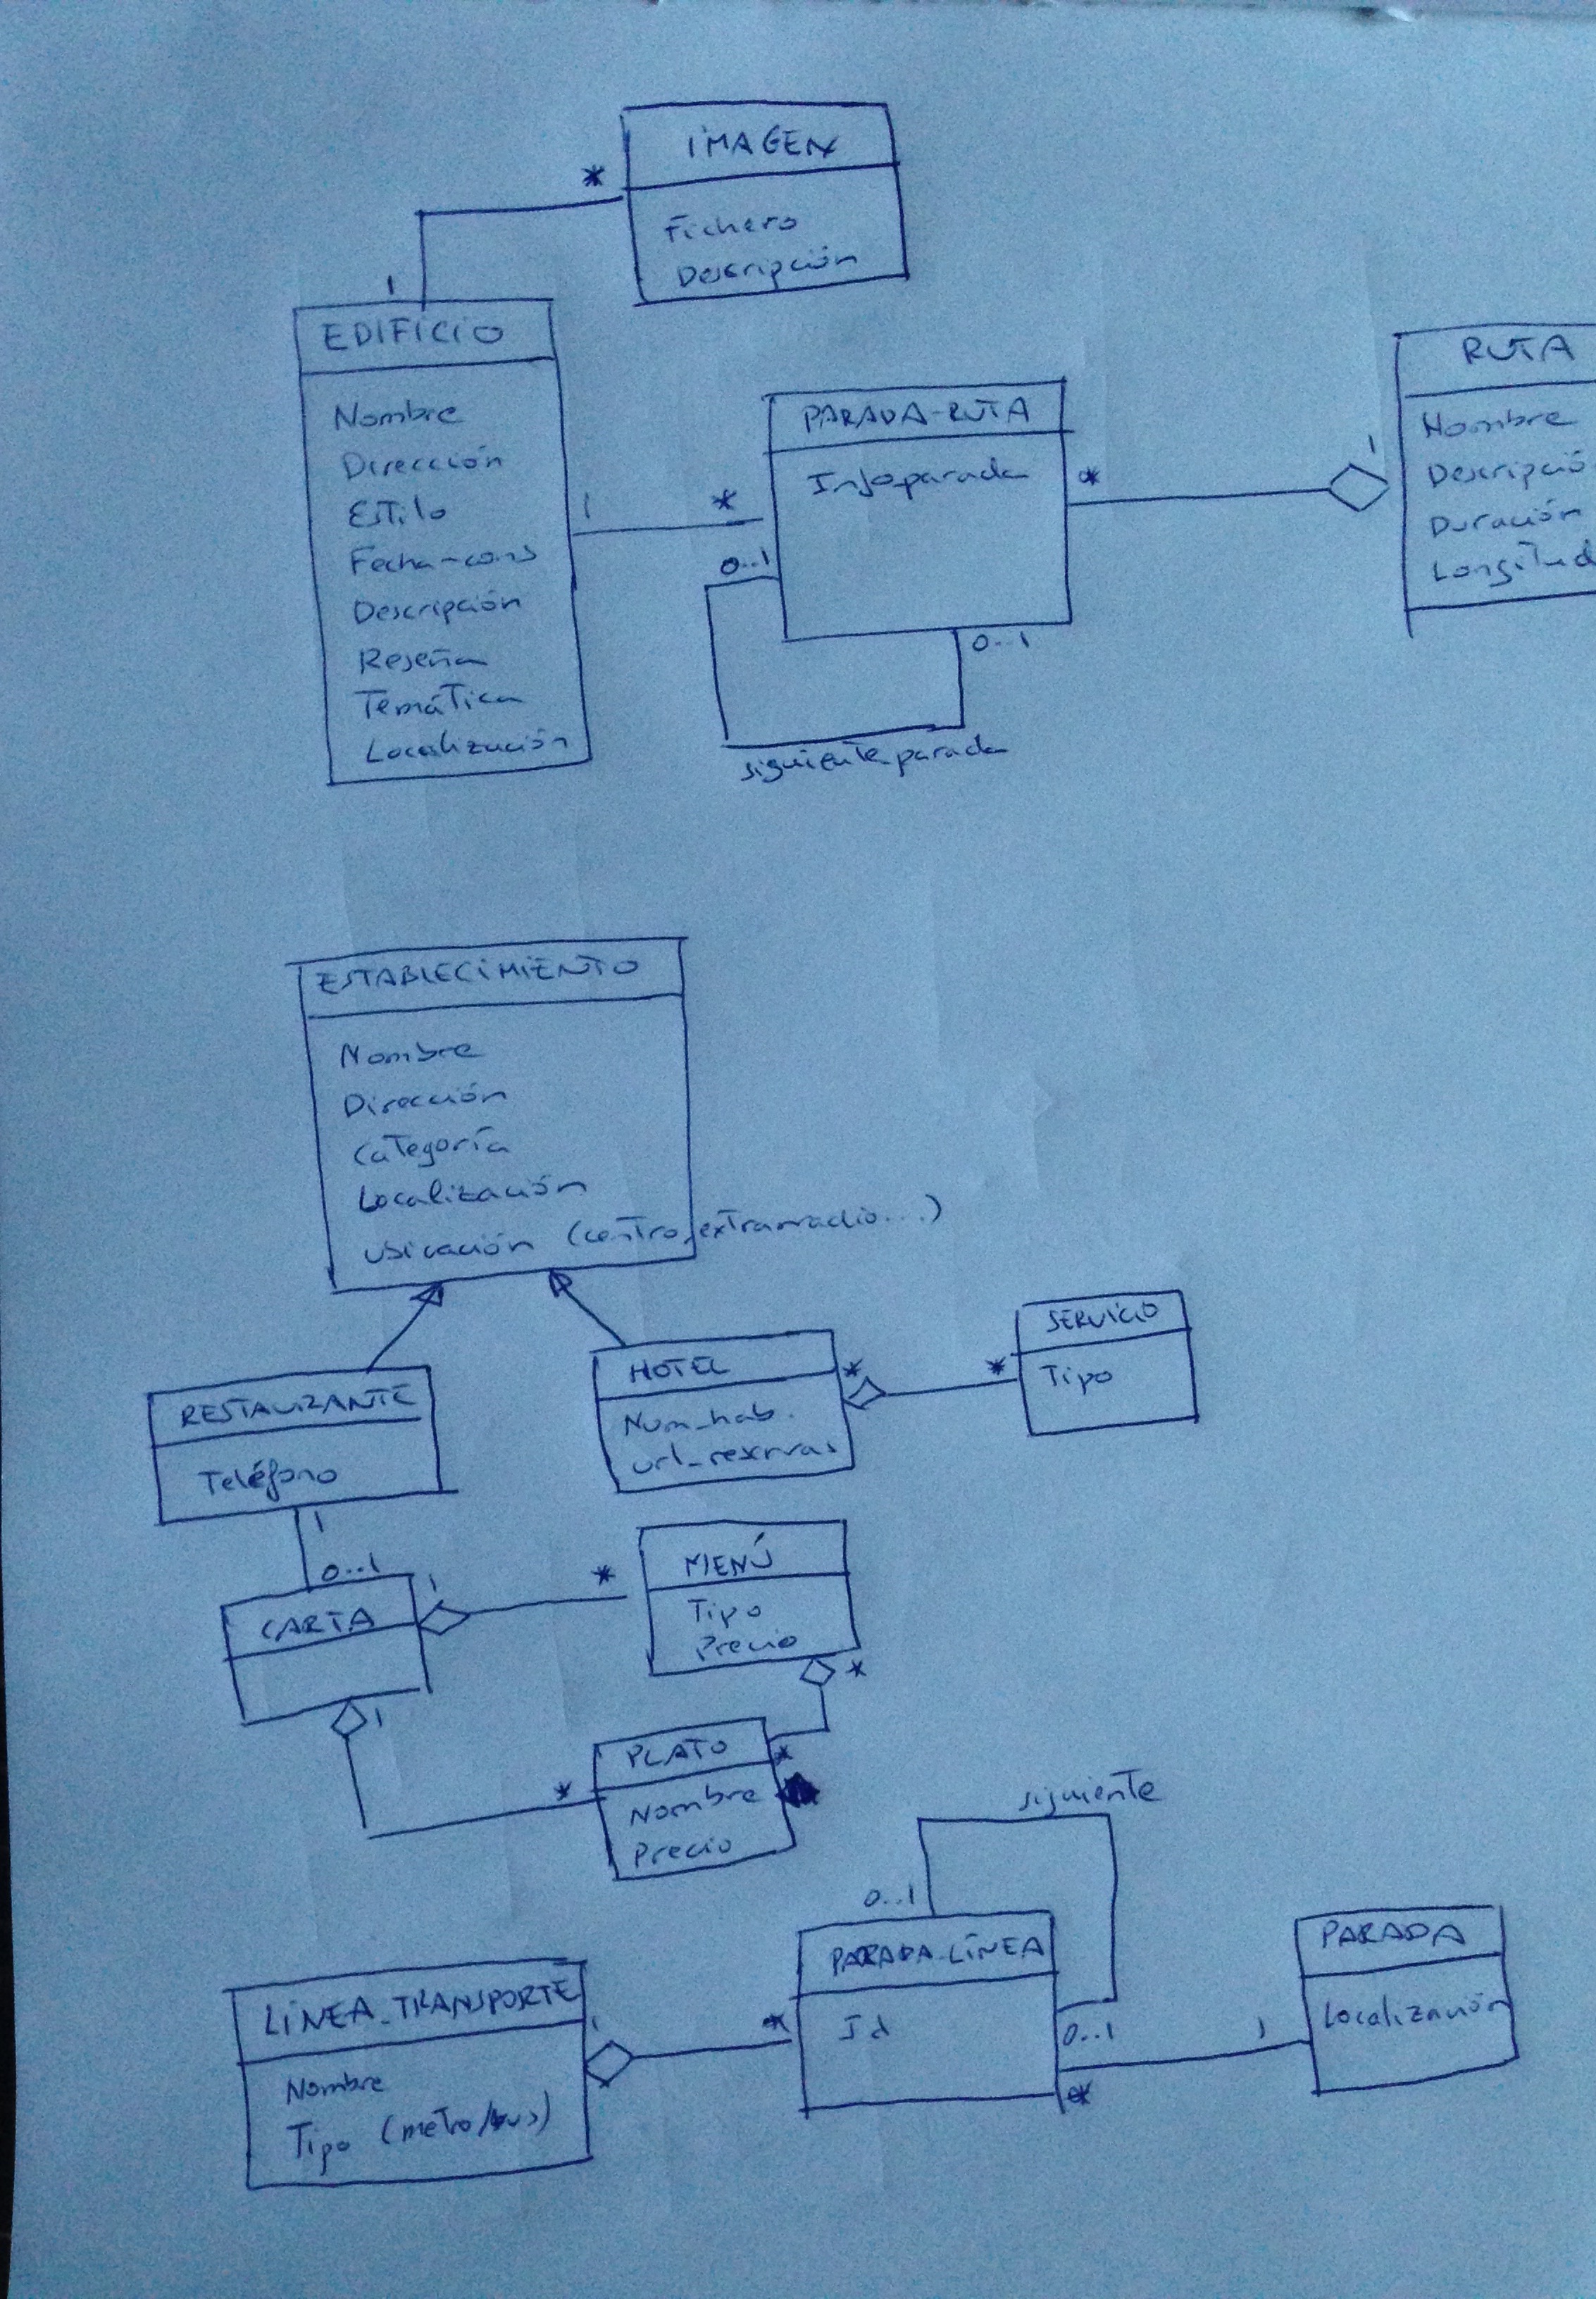 IMAGEN
*
Fichero
Descripción
1
EDIFICIO
Nombre
Dirección
Estilo
Fecha-cons
Descripción
Reseña
Temática
Localización
1
*
PARADA-RUTA
Info_parada
0..1
0..1
siguiente_parada
*
1
RUTA
Nombre
Descripció
Duración
Longitud
ESTABLECIMIENTO
Nombre
Dirección
Categoría
Localización
Ubicación (centro, extrarradio...)
RESTAURANTE
Teléfono
HOTEL
Num_hab.
url_reservas
*
*
SERVICIO
Tipo
1
0..1
CARTA
1
*
MENÚ
Tipo
Precio
*
1
*
PLATO
*
Nombre
Precio
LÍNEA_TRANSPORTE
Nombre
Tipo (metro/bus)
1
*
siguiente
0..1
PARADA_LÍNEA
Id
0..1
*
1
PARADA
Localización